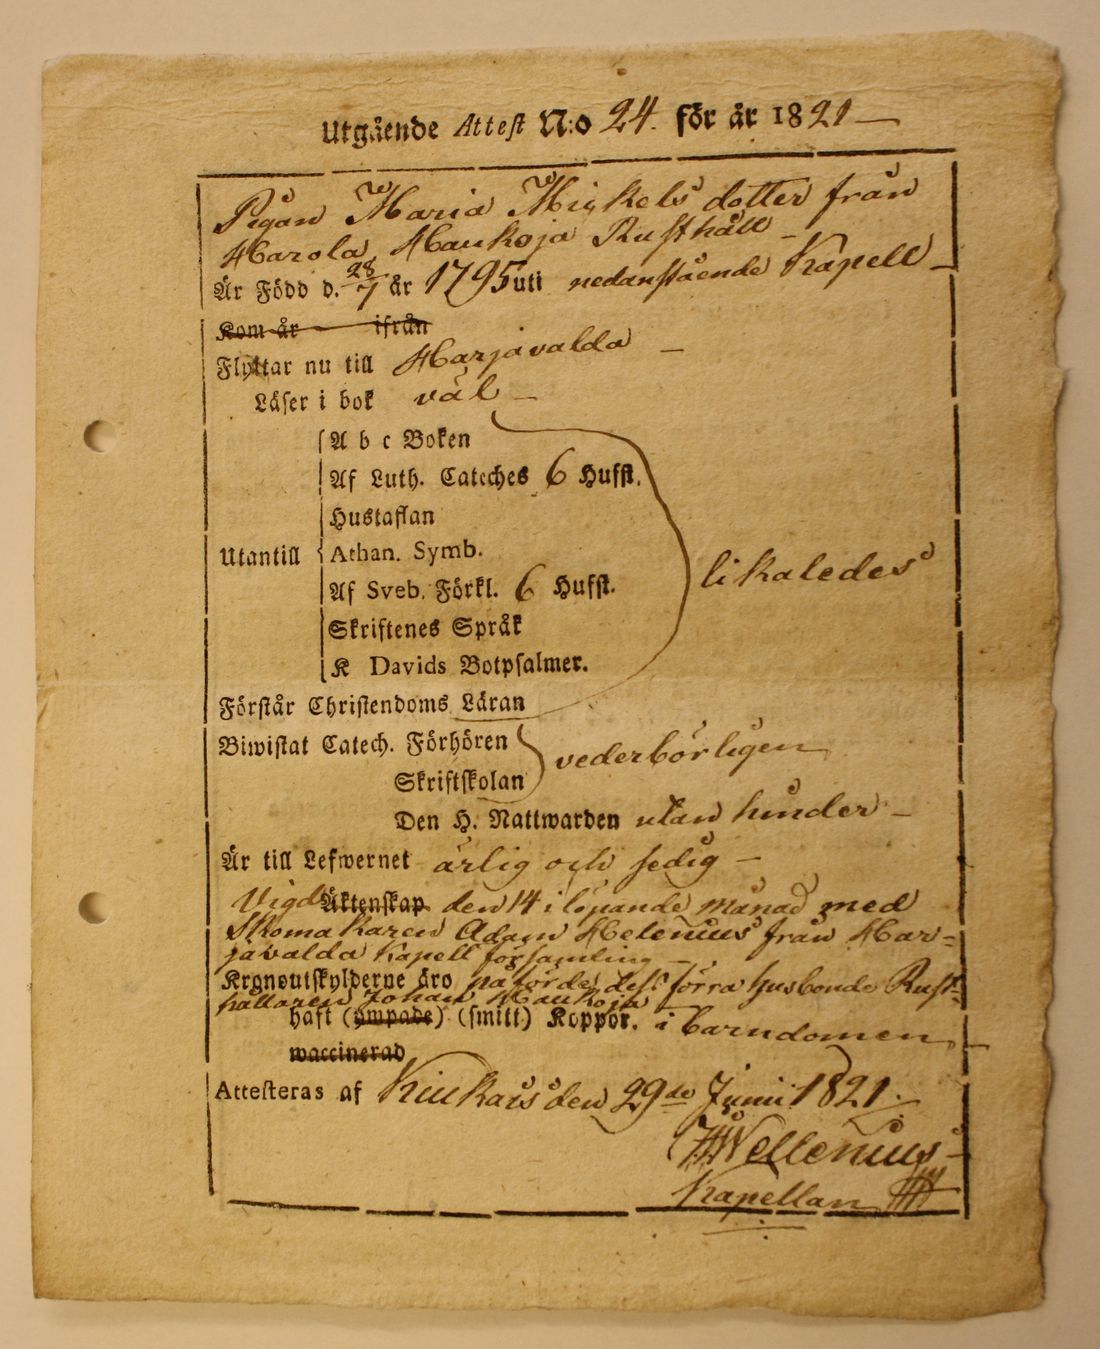 Utgående Attest N:o 24. för år 1821 —
Pigan Maria Mickels dotter från
Harola, Haukoja Rusthåll —
Är Född d. 28/7 år 1795 uti nedanstående Kapell —
Kom år ifrån
Flyttar nu till Harjavalda —
Läser i bok väl —
A b c Boken
Af Luth. Cateches 6 Hufst.
Hustaflan
Utantill Athan. Symb. likaledes
Af Sveb. Förkl. 6 Hufst.
Skriftenes Språk
K Davids Botpsalmer.
Förstår Christendoms Läran
Biwistat Catech. Förhören vederbörligen
Skriftskolan
Den H. Nattwarden utan hinder —
Är till Lefwernet ärlig och sedig —
Vigd Äktenskap den 14 i löpande månad med
Skomakaren Adam Helenius från Har=
javalda Kapell församling —
Kronoutskylderne äro påförde dess förra husbonde Rust=
hållaren Johan Haukoja
haft (ympade) (smitt) Koppor. i barndomen —
waccinerad
Attesteras af Kiukais den 29de Junii 1821.
Wellenius
Kapellan